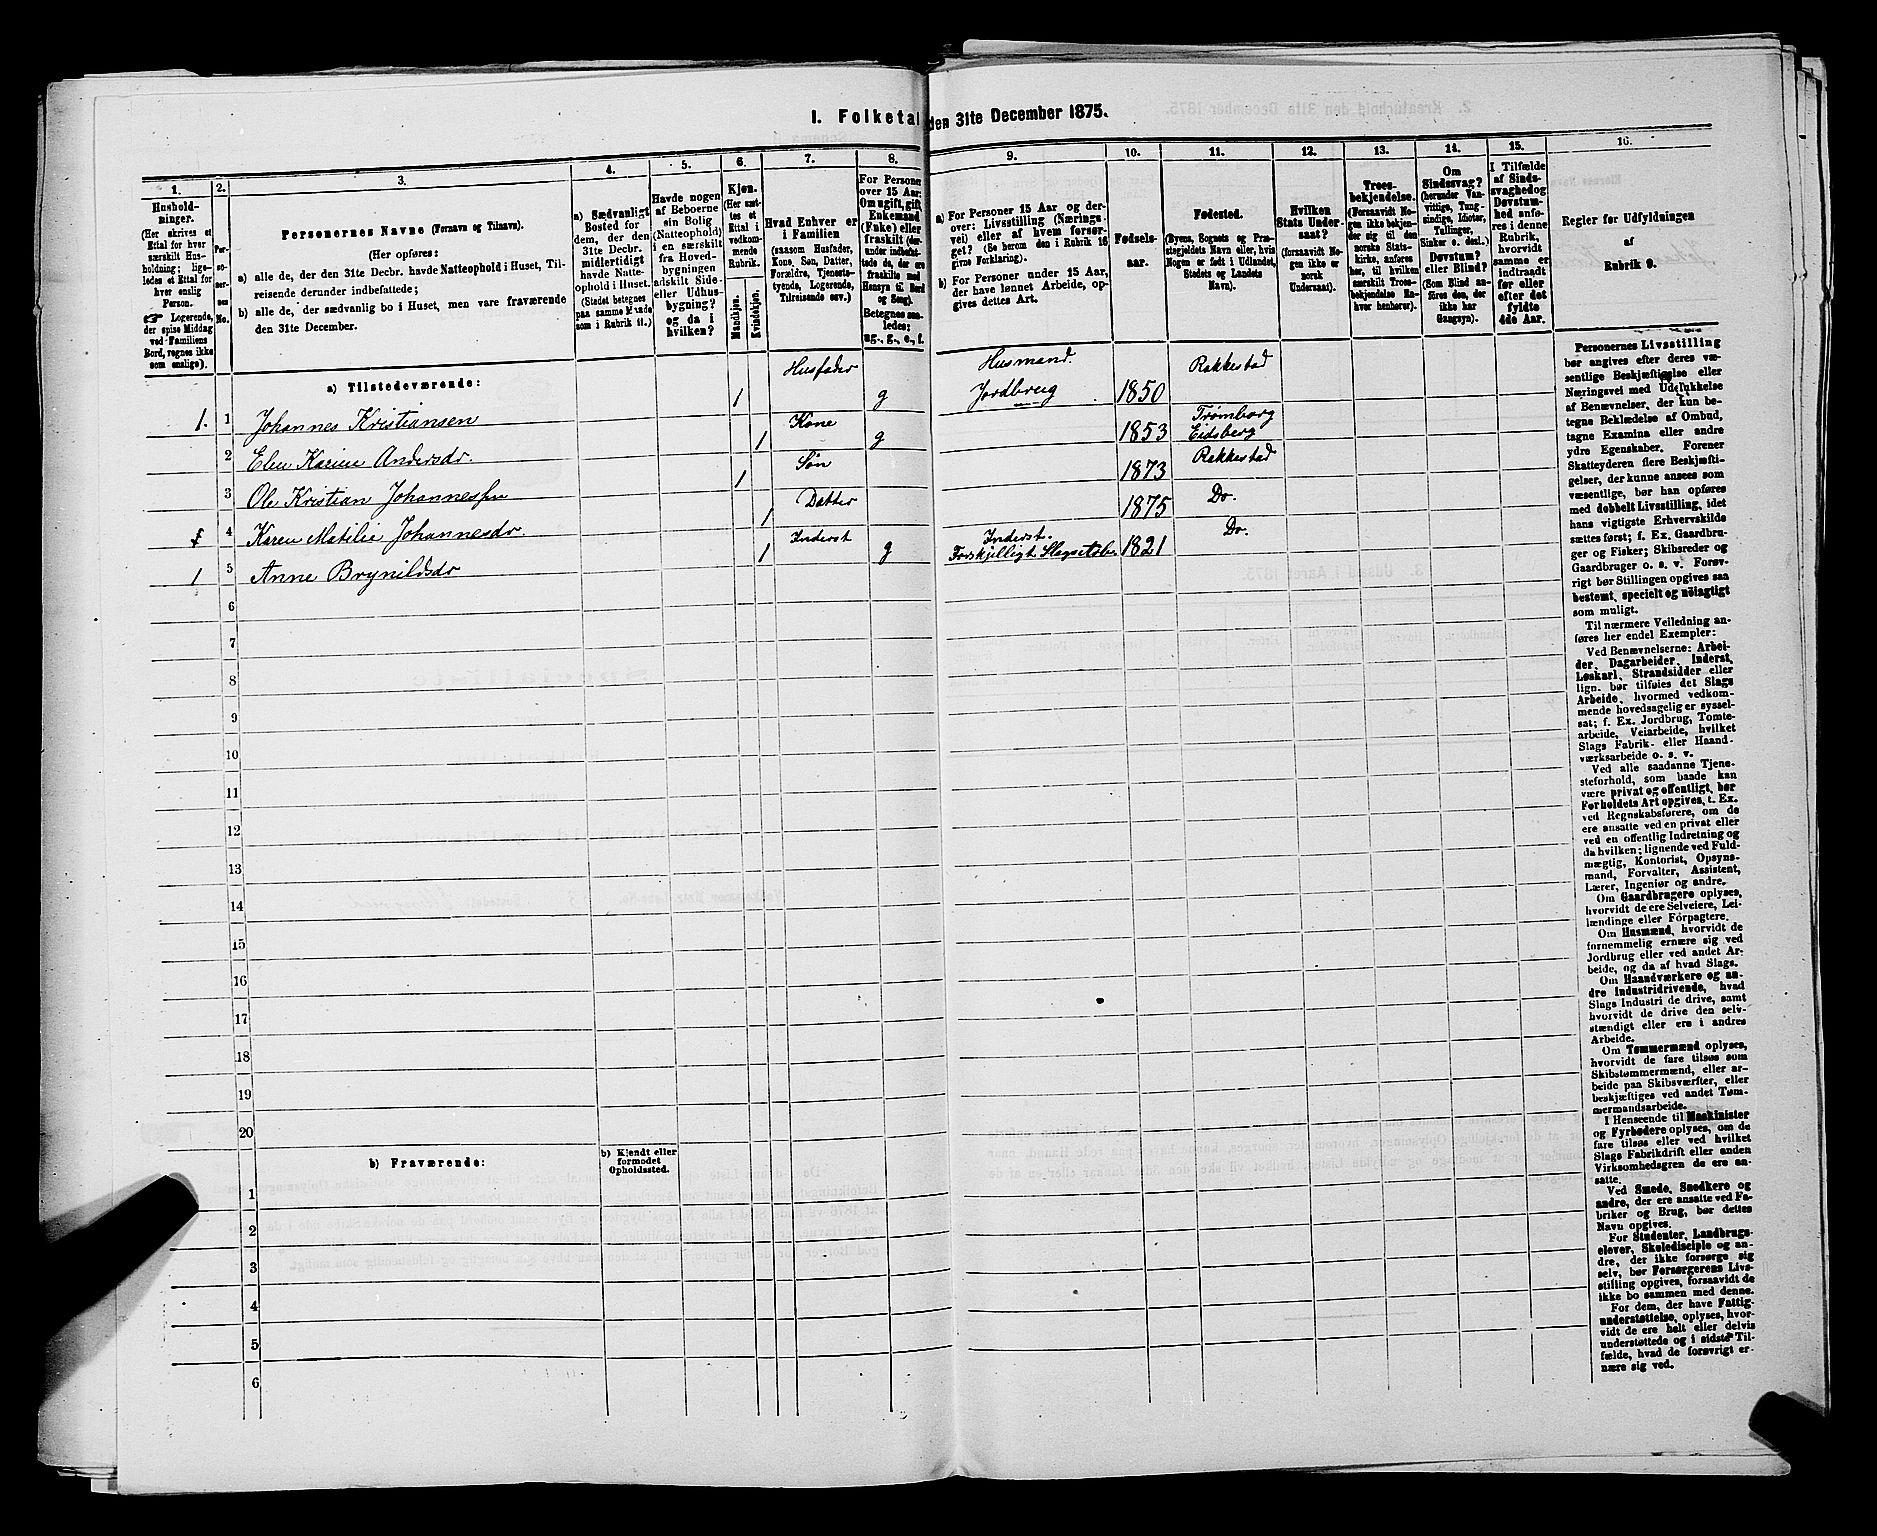 I. Folketal den 31te December 1875.
1. 2. 3. 4. 5. 6. 7. 8. 9. 10. 11. 12. 13. 14. 15. 16.
Hushold-
ninger.
(Her skrives et
Ettal for hver
særskilt Hus-
holdning; lige-
ledes et Ettal for
hver enslig
Person.
☞ Logerende,
der spise Middag
ved Familiens
Bord, regnes ikke
som enslige).
Per-
so-
ner-
nes
No.
Personernes Navne (Fornavn og Tilnavn).
(Her opføres:
a) alle de, der den 31te Decbr. havde Natteophold i Huset, Til-
reisende derunder indbefattede;
b) alle de, der sædvanlig bo i Huset, men vare fraværende
den 31te December.
a) Sædvanligt
Bosted for
dem, der den
31te Decbr.
midlertidigt
havde Natte-
ophold i Huset.
(Stedet betegnes
paa samme Maade
som i Rubrik 11.)
Havde nogen
af Beboerne
sin Bolig
(Natteophold)
i en særskilt
fra Hoved-
bygningen
adskilt Side-
eller Udhus-
bygning?
og da i
hvilken?
Kjøn.
(Her sæt-
tes et
Ettal i
vedkom-
mende
Rubrik.
Mandkjøn.
Kvindekjøn.
Hvad Enhver er
i Familien
(saasom Husfader,
Kone, Søn, Datter,
Forældre, Tjeneste-
tyende, Logerende,
Tilreisende osv.)
For Personer
over 15 Aar:
Om ugift, gift,
Enkemand
(Enke) eller
fraskilt (der-
under indbefat-
tede de, der ere
fraskilte med
Hensyn til Bord
og Seng).
Betegnes saa-
ledes:
ug., g., e., f.
a) For Personer 15 Aar og der-
over: Livsstilling (Nærings-
vei) eller af hvem forsør-
get? (Se herom den i Rubrik 16
givne Forklaring).
b) For Personer under 15 Aar,
der have lønnet Arbeide, op-
gives dettes Art.
Fødsels-
aar.
Fødested.
(Byens, Sognets og Præ-
stegjeldets Navn eller, hvis
Nogen er født i Udlandet,
Stedets og Landets
Navn).
Hvilken
Stats Under-
saat?
(forsaavidt No-
gen ikke er
norsk
Undersaat).
Troes-
bekjendelse.
(Forsaavidt No-
gen ikke bekjen-
der sig til den
norske Stats-
kirke, anføres
her, til hvilken
særskilt Troes-
bekjendelse En-
hver henhører).
Om
Sindssvag?
(herunder Van-
vittige, Tung-
sindige, Idioter,
Tullinger,
Sinker o. desl.)
Døvstum?
eller Blind?
(Som Blind an-
føres den, der
ikke har
Gangsyn).
I Tilfælde
af Sinds-
svaghed og
Døvstum-
hed anfø-
res i denne
Rubrik,
hvorvidt
samme er
indtraadt
før eller
efter det
fyldte
4de Aar.
Regler for Udfyldningen
af
Rubrik 9.
a) Tilstedeværende:
1. 1 Johannes Kristiansen 1 Husfader g Husmand. Jordbrug 1850 Rakkestad
2 Elen Karine Andersdr. 1 Kone g 1853 Trømborg Eidsberg
3 Ole Kristian Johannessen 1 Søn 1873 Rakkestad
4 Karen Matilie Johannesdr. 1 Datter 1875 Do.
1 5 Anne Brynildsdr 1 Inderst g Inderst. Forskjelligt Slags 1821 Do.
6
7
8
9
10
11
12
13
14
15
16
17
18
19
20
b) Fraværende:
b) Kjendt eller
formodet
Opholdssted.
1
2
3
4
5
6
Personernes Livsstilling
bør angives efter deres væ-
sentlige Beskjæftigelse eller
Næringsvei med Udelukkelse
af Benævnelser, der kun be-
tegne Beklædelse af Ombud,
tagne Examina eller andre
ydre Egenskaber. Forener
Skatteyderen flere Beskjæfti-
gelser, der kunne ansees som
væsentlige, bør han opføres
med dobbelt Livsstilling, idet
hans vigtigste Erhvervskilde
sættes først; f. Ex. Gaardbru-
ger og Fisker; Skibsreder og
Gaardbruger o. s. v. Forøv-
rigt bør Stillingen opgives saa
bestemt, specielt og nøiagtigt
som muligt.
Til nærmere Veiledning an-
føres her endel Exempler:
Ved Benævnelserne: Arbei-
der, Dagarbeider, Inderst,
Løskarl, Strandsidder eller
lign. bør tilføies det Slags
Arbeide, hvormed vedkom-
mende hovedsagelig er syssel-
sat; f. Ex. Jordbrug, Tomte-
arbeide, Veiarbeide, hvilket
Slags Fabrik- eller Haand-
værksarbeide o. s. v.
Ved alle saadanne Tjene-
steforhold, som baade kan
være privat og offentligt, bør
Forholdets Art opgives, t. Ex.
ved Regnskabsførere, om de
ere ansatte ved en privat eller
ved en offentlig Indretning og
da hvilken; lignende ved Fuld-
mægtig, Kontorist, Opsyns-
mand, Forvalter, Assistent,
Lærer, Ingeniør og andre.
Om Gaardbrugere oplyses,
hvorvidt de ere Selveiere, Lei-
lændinge eller Forpagtere.
Om Husmænd, hvorvidt de
fornemmelig ernære sig ved
Jordbrug eller ved andet Ar-
beide, og da af hvad Slags.
Om Haandværkere og an-
dre Industridrivende, hvad
Slags Industri de drive, samt
hvorvidt de drive den selv-
stændigt eller ere i andres
Arbeide.
Om Tømmermænd oplyses,
hvorvidt de fare tilsøs som
Skibstømmermænd, eller ar-
beide paa Skibsværfter, eller
beskjæftiges ved andet Tøm-
mermandsarbeide.
I Henseende til Maskinister
og Fyrbødere oplyses, om de
fare tilsøs eller ved hvilket
Slags Fabrikdrift eller anden
Virksomhedsgren de ere an-
satte.
Ved Smede, Snedkere og
andre, der ere ansatte ved Fa-
briker og Brug, bør dettes
Navn opgives.
For Studenter, Landbrugs-
elever, Skoledisciple og an-
dre, der ikke forsørge sig
selv, bør Forsørgerens Livs-
stilling opgives, forsaavidt de
ikke bo sammen med denne.
For dem, der have Fattig-
understøttelse, oplyses, hvor-
vidt de ere helt eller delvis
understøttede og i sidste Til-
fælde, hvad de forøvrigt er-
nære sig ved.